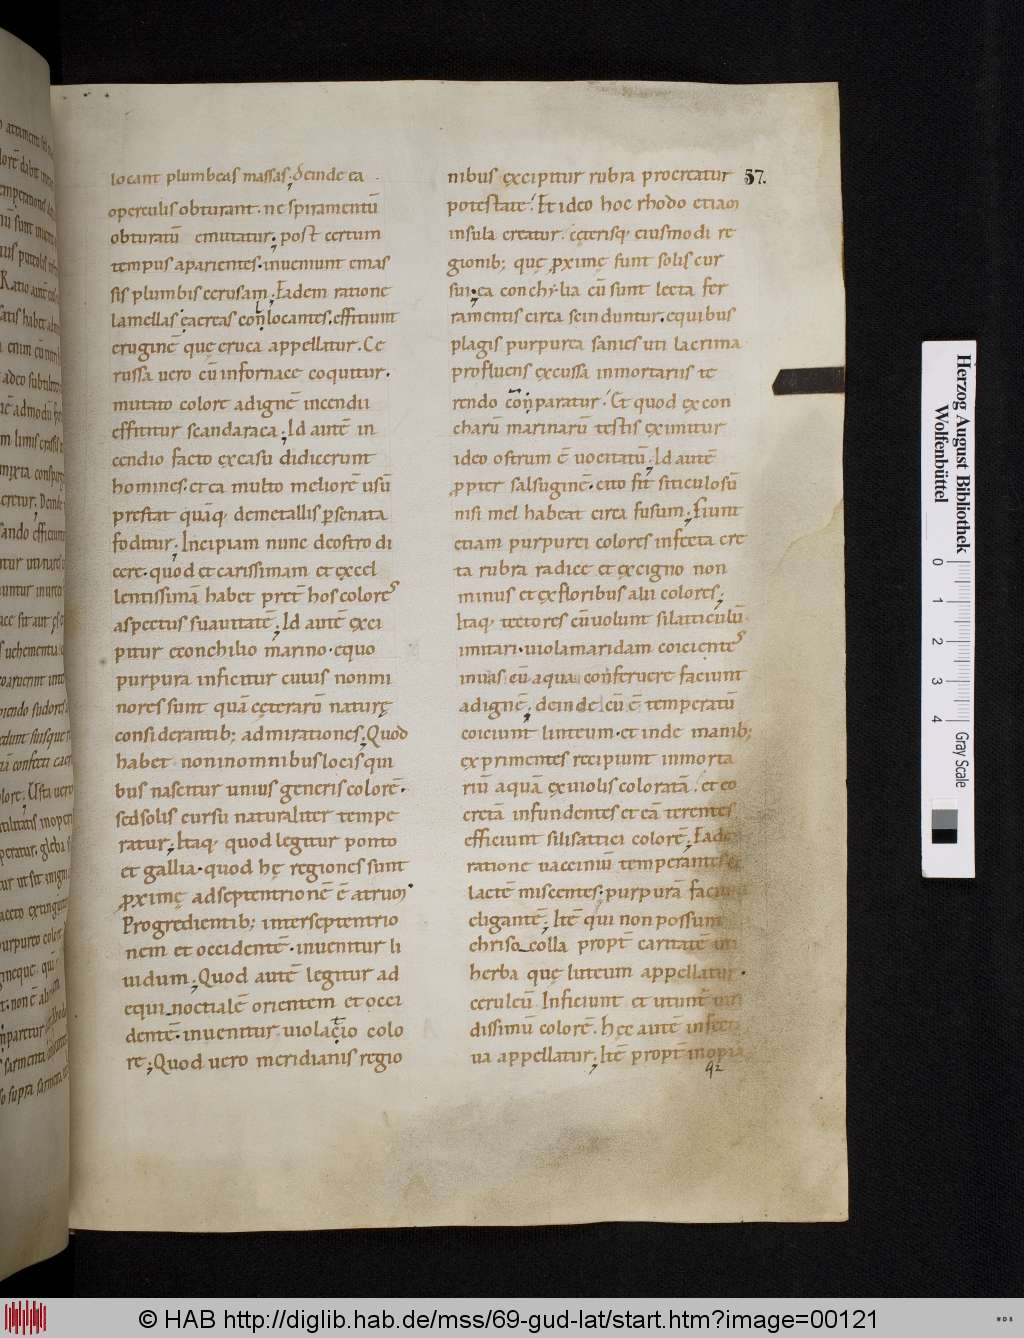 locant plumbeas massas; deinde ea
operculis obturant. ne spiramentū
obturatū emutatur; post certum
tempus aparientes. inueniunt emas
sis plumbis cerusam; Eadem ratione
lamellas ęaereas conlocantes. effitiunt
eruginē quę eruca appellatur. Ce
russa uero cū infornace coquitur.
mutato colore adignē incendii
effititur scandaraca; Id autē in
cendio facto ęxcasu didicerunt
homines. et ea multo meliorē usū
prestat quāq; demetallis p̄senata
foditur; Incipiam nunc deostro di
cere. quod et carissimam et ęxcel
lentissimā habet pret̄ hos colore᷒
aspectus suauitatē; Id autē ęxci
pitur econchilio marino. equo
purpura inficitur cuius non mi
nores sunt quā cęterarū naturę
considerantib; admirationes; Quod
habet non in omnibus locis qui
bus nascitur unius generis colorē.
sed solis cursu naturaliter tempe
ratur; Itaq; quod legitur ponto
et gallia. quod hę regiones sunt
ꝓximę adseptentrionē ē atrum
Progredientib; interseptentrio
nem et occidentē. inuenitur li
uidum; Quod autē legitur ad
equinoctialē orientem et occi
dentē. inuenitur uiolacio colo
re; Quod uero meridianis regio
nibus ęxcipitur rubra procreatur 57.
potestate. Et ideo hoc rhodo etiam
insula creatur. cęterisq; eiusmodi re
gionib; quę ꝓximę sunt solis cur
sui; ea conchylia cū sunt lecta fer
ramentis circa scinduntur. equibus
plagis purpurea sanies uti lacrima
profluens ęxcussa inmortariis te
rendo conparatur. Et quod ęx con
charū marinarū testis ęximitur
ideo ostrum ē uocitatū; Id autē
ꝓpter salsuginē. cito fit siticulosū
nisi mel habeat circa fusum; Fiunt
etiam purpurei colores infecta cre
ta rubra radice et ęxcigno non
minus et ęxfloribus alii colores;
Itaq; tectores cū uolunt sil atticulū
imitari. uiolam aridam coiciente᷒
inuas cū aqua conferuere faciunt
adignē; deinde cū ē temperatū
coiciunt linteum. et inde manib;
ęxprimentes recipiunt inmorta
riū aquā ęxuiolis coloratā. et eo
cretā infundentes et eā terentes
efficiunt silis attici colorē; Eade
ratione uaccinīu temperantes et
lactē miscentes; purpurā faciun
eligantē; Itē qui non possunt
chriso_colla propt̄ caritatē uti
herba quę luteum appellatur.
ceruleū Inficiunt et utunt̄ uiri
dissimū colorē. hęc autē infecti
ua appellatur; Itē propt̄ inopia
Herzog August Bibliothek
Wolfenbüttel
0 1 2 3 4
Gray Scale
© HAB http://diglib.hab.de/mss/69-gud-lat/start.htm?image=00121